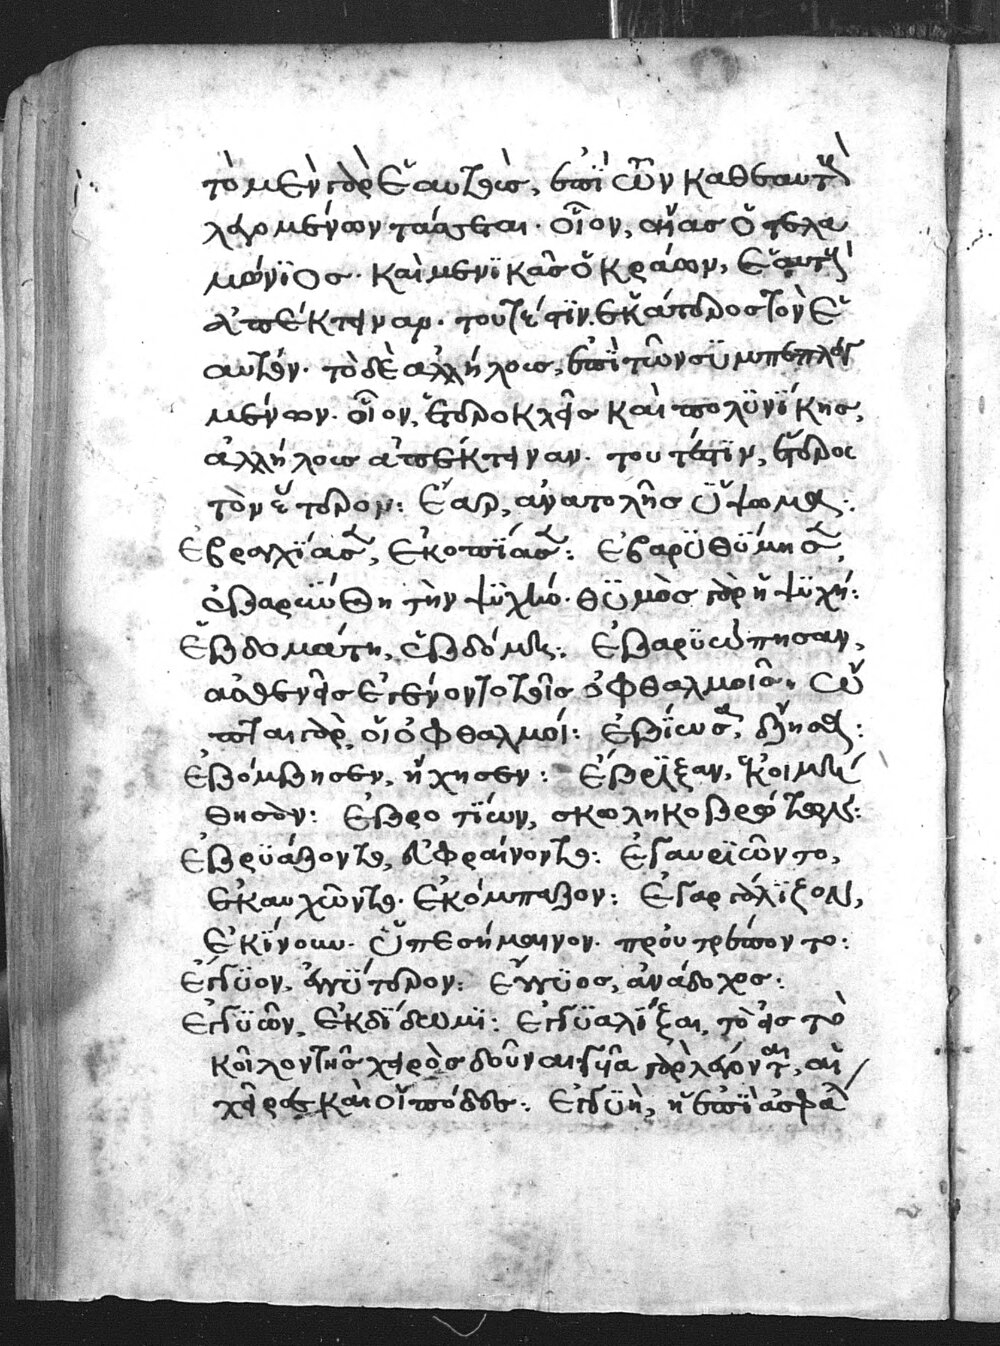 τὸ μὲν γὰρ ἑαυτοῖς, ἐπὶ ὧν καθ ἑαυτῶν
λεγομένων τάσσεται. οἷον, αἴας ὁ τελα
μώνϊος. καὶ μενϊκαῖος ὁ κρέων, ἑαυτοὺς
ἀπέκτειναν. τουτέστϊν ἕκάτερος τὸν ἑ
αυτόν. τὸ δὲ ἀλλήλοις, ἐπὶ τῶν σϋμπεπλεγ
μένων. οἷον, ἐτεοκλῆς καὶ πολϋνίκης,
ἀλλήλοις ἀπέκτειναν. τουτέστϊν, ἕτερος
τὸν ἕτερον: Ἕαρ, ἀνατολῆς ὕψωμα:
Ἐβραγχίασε, ἐκοπίασε: Ἐβαρϋθϋμησε,
ἐβαρύνθη τὴν ψϋχήν. θϋμὸς γὰρ ἡ ψϋχή:
Ἑβδομάτη, ἑβδόμη: Ἐβαρϋώπησαν,
ἀσθενεῖς ἐγένοντο τοῖς ὀφθαλμοῖς. ὦ
πται γὰρ, οἱ ὀφθαλμοί: Ἐβίωσε, ἔζησε:
Ἐβόμβησεν, ἤχησεν: Ἔβρϊξαν, ἐκοιμή
θησαν: Ἐβροτίων, σκωληκοβρώτων:
Ἐβρϋάζοντο, εὐφραίνοντο: Ἐγαυρϊῶντο,
ἐκαυχῶντο. ἐκόμπαζον: Ἐγαργάλϊζον,
ἐκίνουν. ὑπεσήμαινον. προὐτρέποντο:
Ἐγγϋον, ἐγγύτερον: Ἔγγϋος, ἀνάδοχος:
Ἐγγϋῶν, ἐκδίδωμϊ: Ἐγγϋαλίξαι, τὸ εἰς τὸ
κοῖλον τῆς χειρὸς δοῦναι γυῖα γὰρ λέγονται, αἱ
χεῖρες καὶ οἱ πόδες: Ἐγγϋὴ, ἡ ἐπὶ ἀσφα